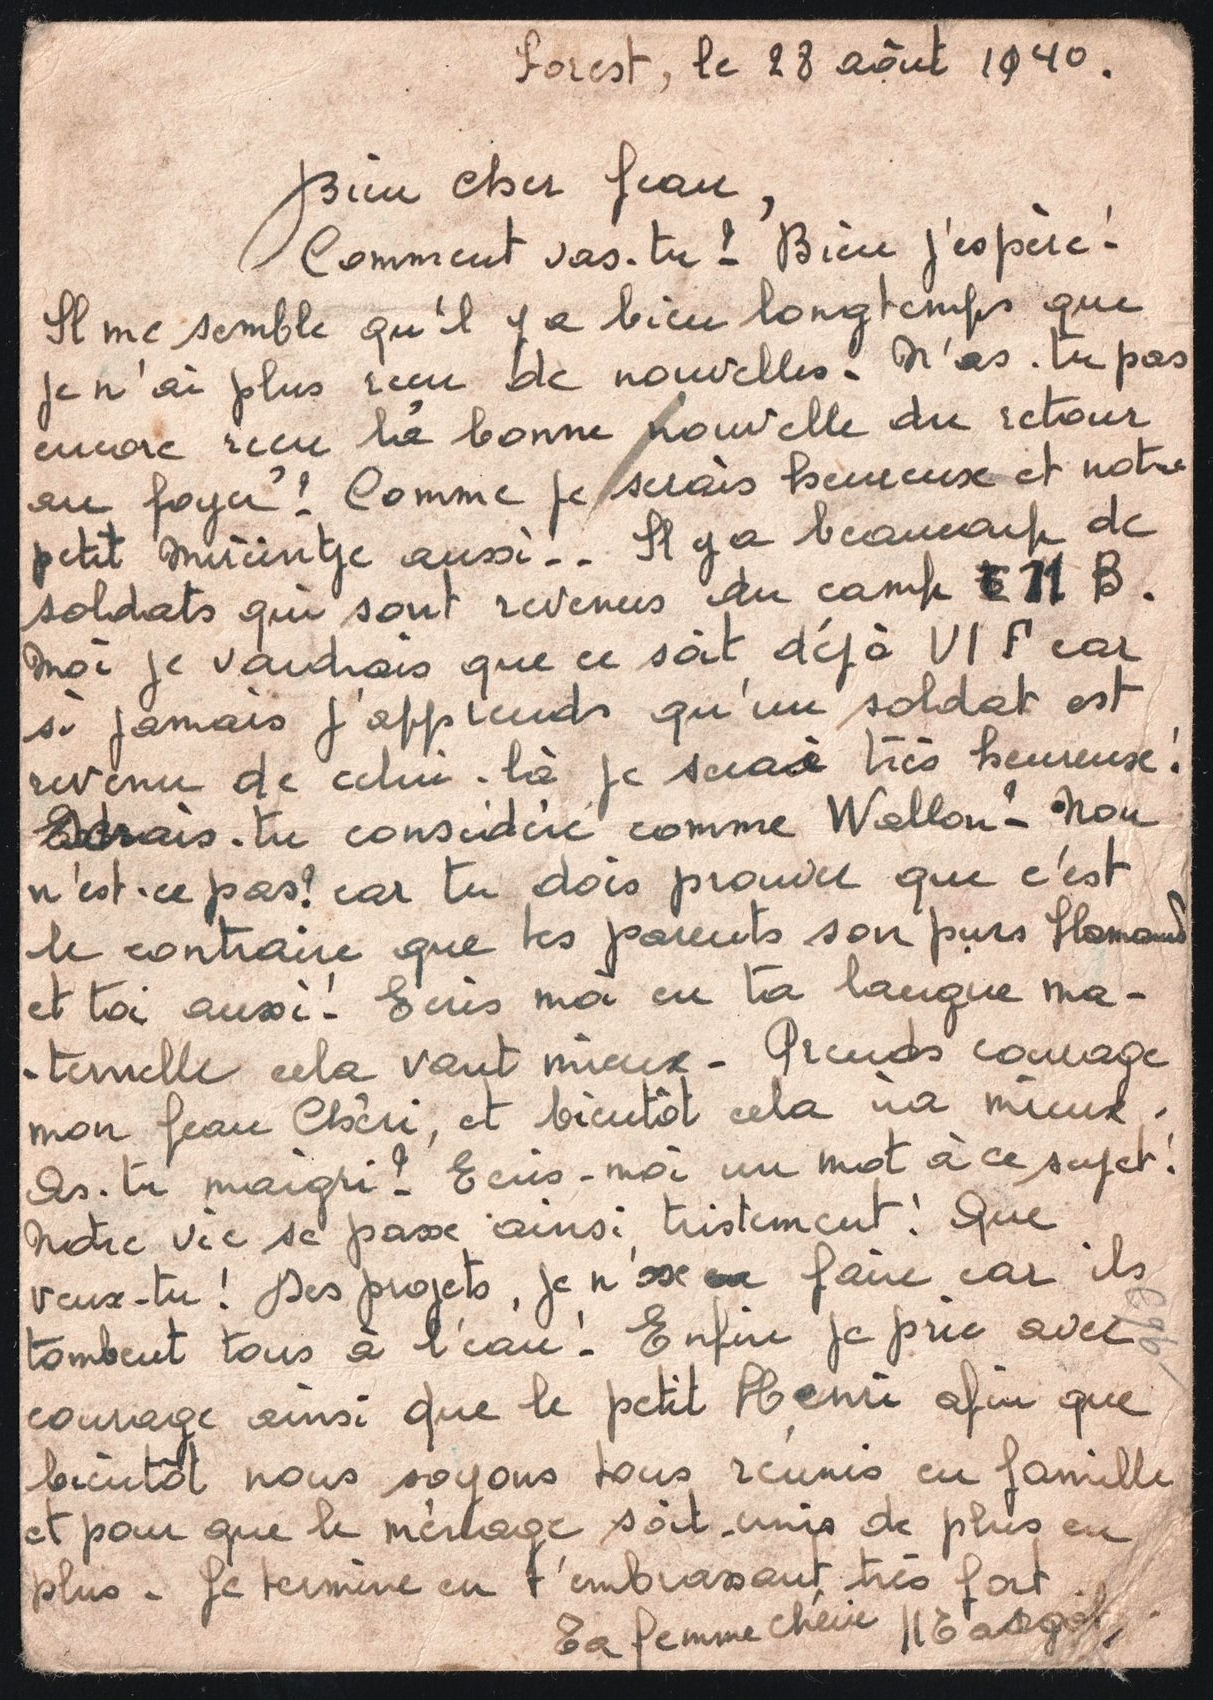 Forest, le 28 août 1940.
Bien cher Jean,
Comment vas-tu? Bien j'espère!
Il me semble qu'il y a bien longtemps que
je n'ai plus reçu de nouvelles. N'as-tu pas
encore reçu la bonne nouvelle du retour
au foyer?! Comme je serais heureuse et notre
petit aussi.. Il y a beaucoup de
soldats qui sont revenus du camp II B.
Moi je voudrais que ce soit déjà VI F car
si jamais j'apprends qu'un soldat est
revenu de celui-là je serai très heureuse!
-tu considéré comme Wallon? Non
n'est-ce pas? car tu dois prouver que c'est
le contraire que tes parents son purs flamands
et toi aussi! Ecris moi en ta langue ma-
-ternelle cela vaut mieux. Prends courage
mon Jean Chéri, et bientôt cela ira mieux.
As-tu maigri? Ecris-moi un mot à ce sujet!
Notre vie se passe ainsi tristement! Que
veux-tu! Des projets, je n'ose faire car ils
tombent tous à l'eau! Enfin je prie avec
courage ainsi que le petit Henri afin que
bientôt nous soyons tous réunis en famille
et pour que le ménage soit unis de plus en
plus. Je termine en t'embrassant très fort.
Ta femme chérie Margot.